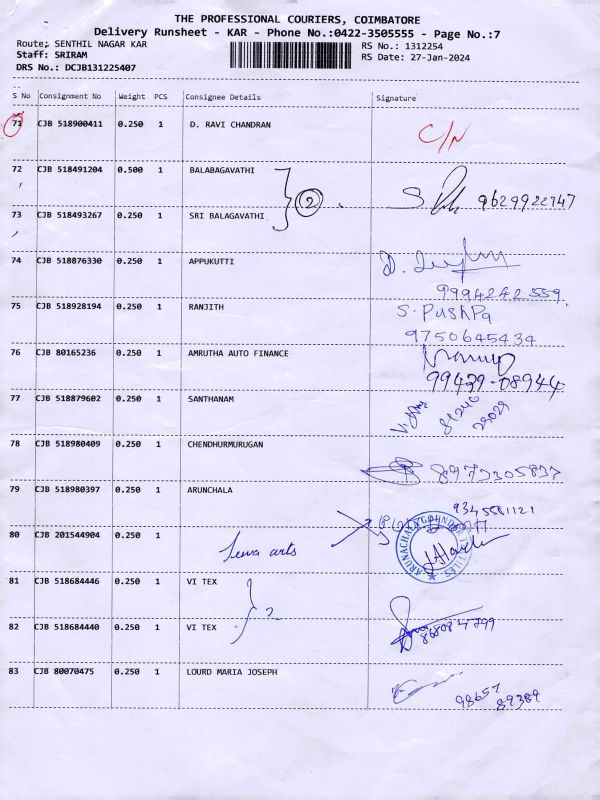 THE PROFESSIONAL COURIERS, COIMBATORE
Delivery Runsheet - KAR - Phone No.:0422-3505555 - Page No.:7
Route: SENTHIL NAGAR KAR
RS No.: 1312254
Staff: SRIRAM
RS Date: 27-Jan-2024
DRS No.: DCJB131225407
S No Consignment No Weight PCS Consignee Details Signature
71 CJB 518900411 0.250 1 D. RAVI CHANDRAN C/N
72 CJB 518491204 0.500 1 BALABAGAVATHI
2 9629922747
73 CJB 518493267 0.250 1 SRI BALAGAVATHI
74 CJB 518876330 0.250 1 APPUKUTTI D.
9994242559
75 CJB 518928194 0.250 1 RANJITH S. PushPa
9750645434
76 CJB 80165236 0.250 1 AMRUTHA AUTO FINANCE
99439-08944
77 CJB 518879602 0.250 1 SANTHANAM
78 CJB 518980409 0.250 1 CHENDHURMURUGAN
8973305837
79 CJB 518980397 0.250 1 ARUNCHALA
9345581121
80 CJB 201544904 0.250 1
arts
81 CJB 518684446 0.250 1 VI TEX
2
82 CJB 518684440 0.250 1 VI TEX
83 CJB 80070475 0.250 1 LOURD MARIA JOSEPH
98657
89389